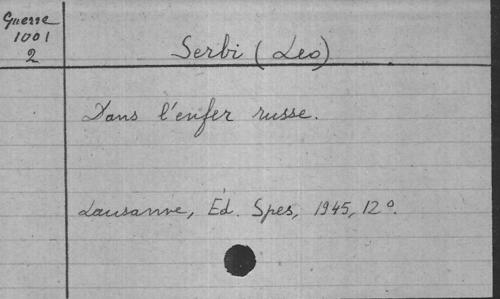 Guerre
1001
2
Serbi (Leo)
Dans l'enfer russe.
Lausanne, Ed. Spes, 1945, 12°.